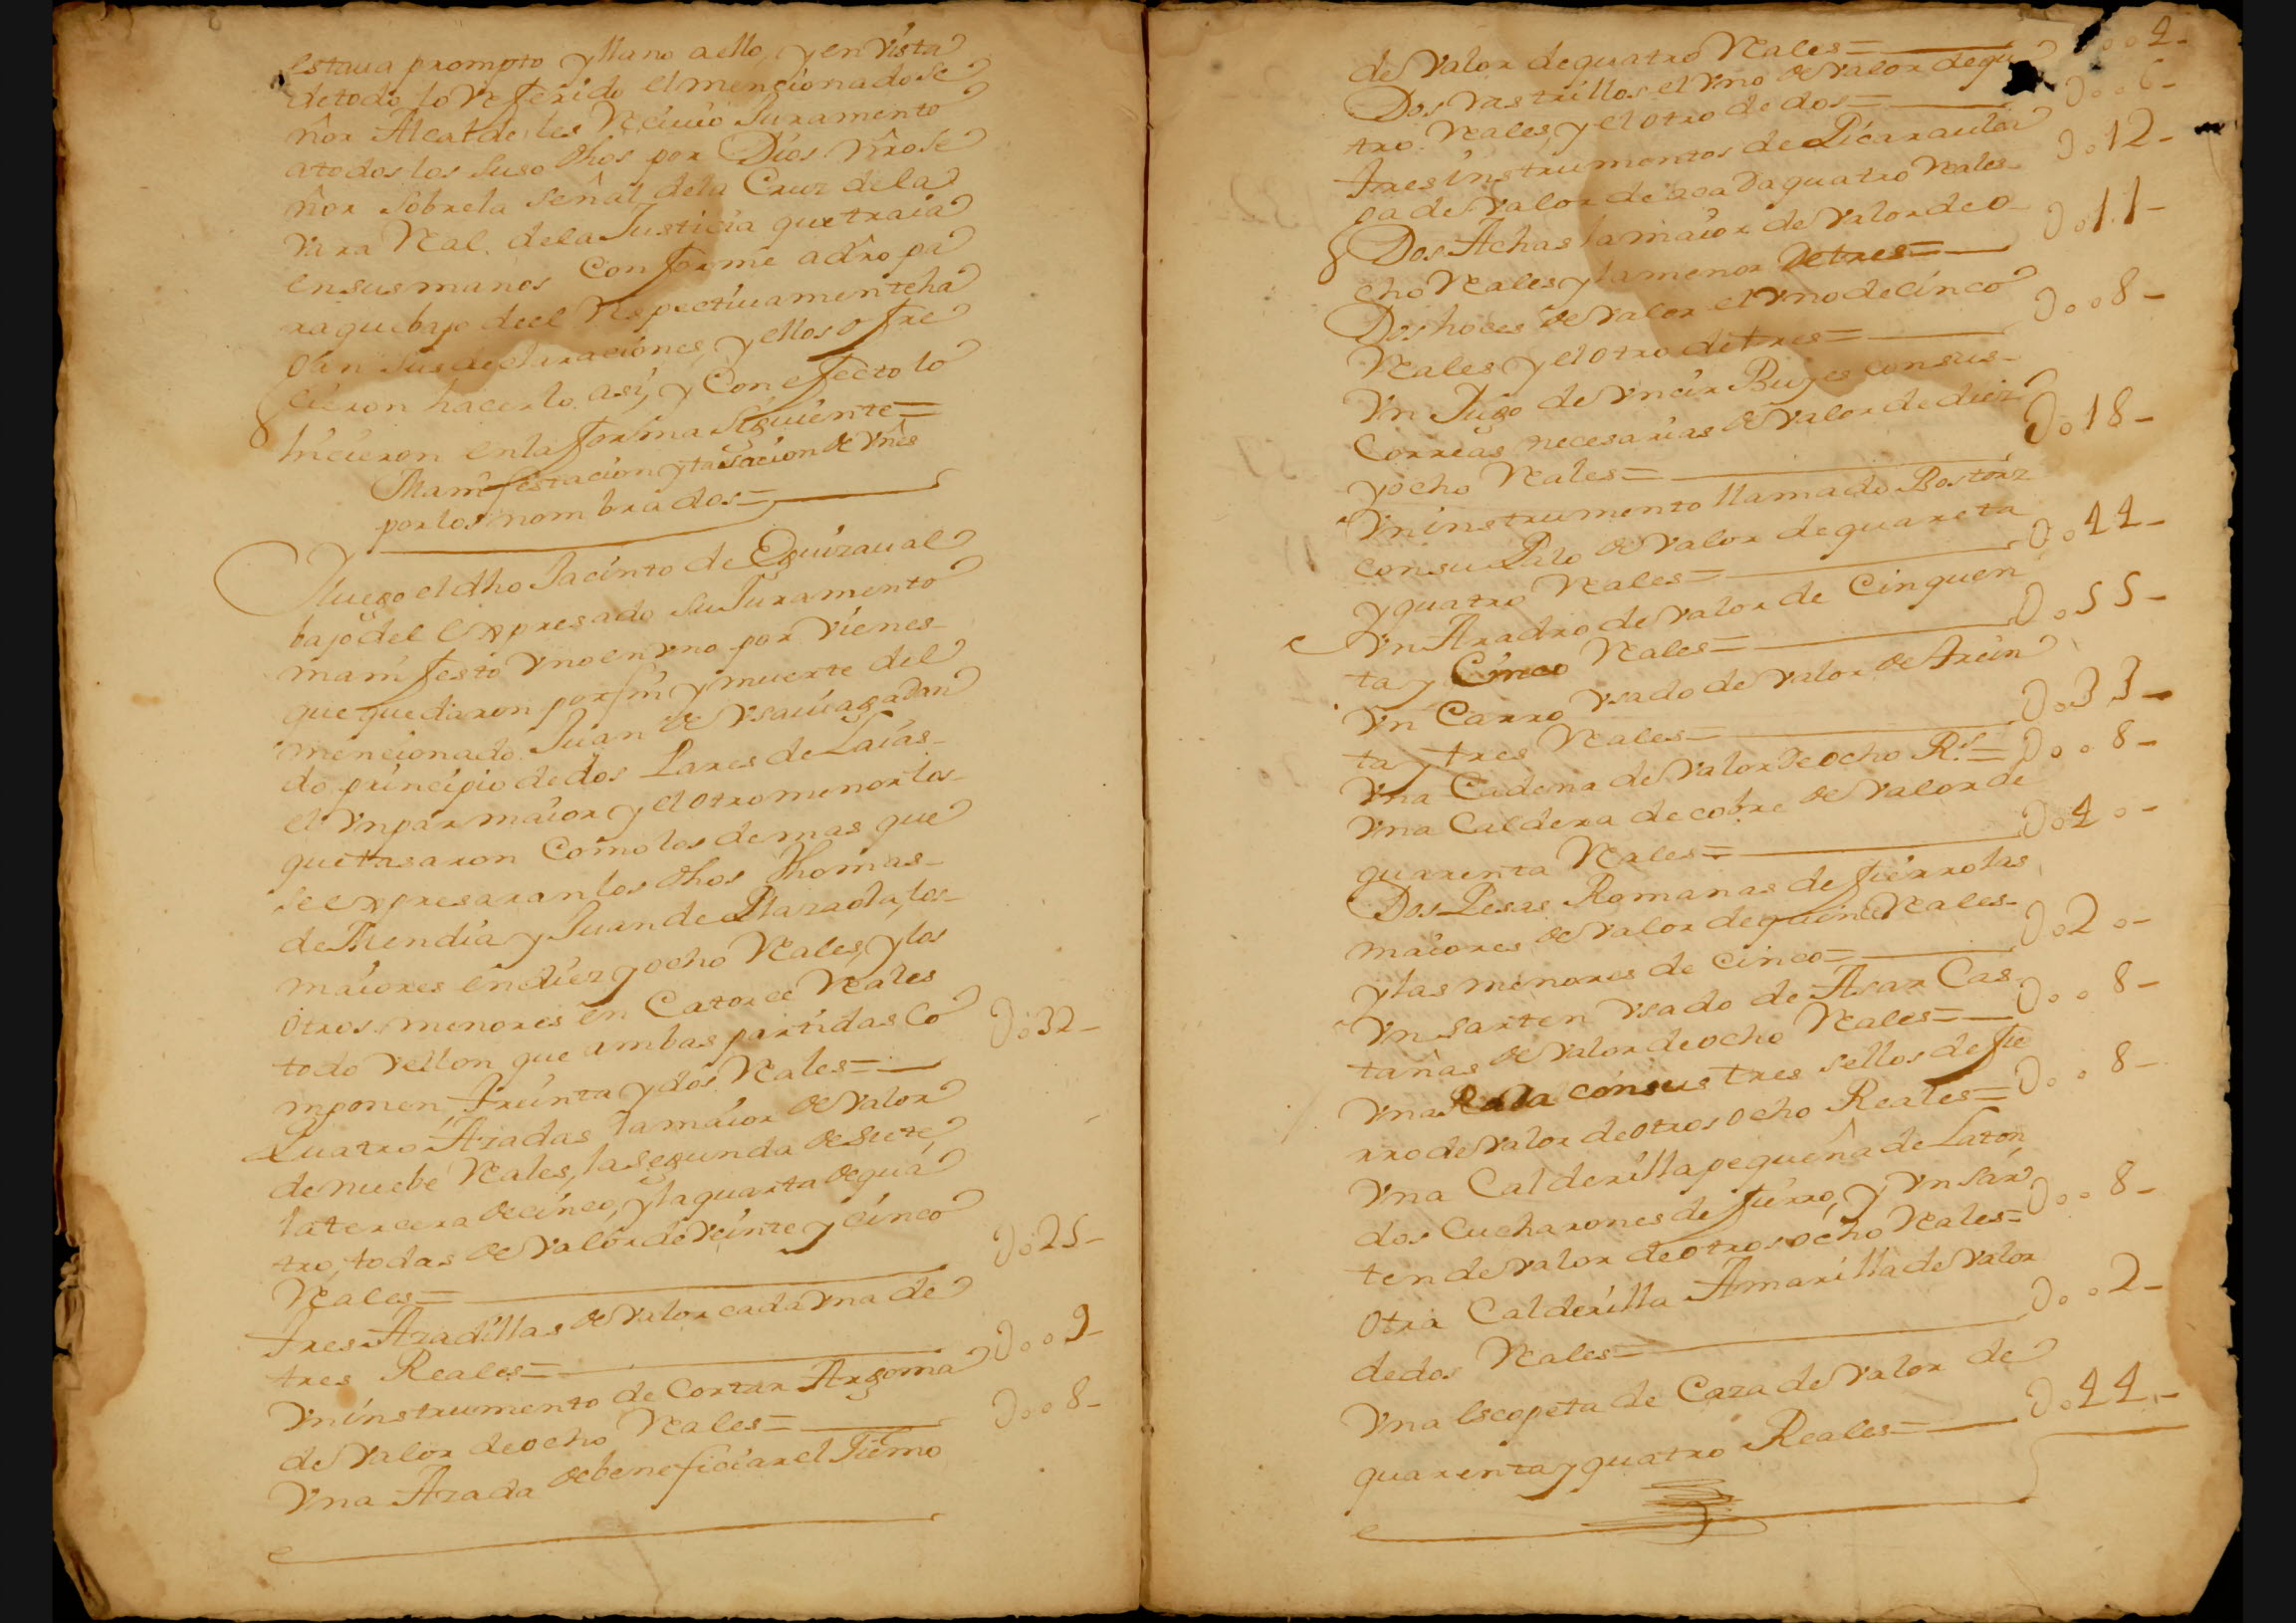 estaua prompto y llano a ello, y en vista
de todo lo Referido el mencionado Se
ñor Alcalde les Reciuio Juramento
a todos los Suso dhos por Dios nro Se
ñor Sobre la Señal de la Cruz de la
vara Real de la Justicia que traia
en sus manos Conforme a dro pa
ra que bajo de el Respectiuamente ha
gan sus declaraciones, y ellos ofre
cieron hacerlo asi, y Con efecto lo
hicieron en la forma Siguiente=
Manifestacion y tasacion de vnes
por los nombrados=
Luego el dho Jacinto de Eguizaual
bajo del expresado su Juramento
manifesto vno en vno por vienes
que quedaron por fin y muerte del
mencionado Juan de Ysauiaga dan
do principio de dos Lares de Laias
el vn par maior y el otro menor los
que tasaron Como los demas que
se expresaran los dhos Thomas
de Mendia y Juan de Plazaola, los
maiores en diez y ocho Reales, y los
otros menores en Catorce Reales
todo vellon que ambas partidas Co
mponen Treinta y dos Reales= 0032-
Quatro Azadas la maior de valor
de nuebe Reales, la segunda de Siete,
la tercera de cinco, y la quarta de qua
tro, todas de valor de veinte y cinco
Reales= 0025-
Tres Azadillas de valor cada vna de
tres Reales= 0009-
Vn instrumento de Cortar Argoma
de valor de ocho Reales= 0008-
Vna Azada de beneficiar el Tierno
de valor de quatro Reales= 0004-
Dos rastrillos el vno de valor de qu
tro Reales, y el otro de dos= 0006-
Tres instrumentos de Picar aulа
ga de valor de acada quatro Reales 0012-
Dos Achas la maior de valor de o
cho Reales y la menor de tres= 0011-
Dos hoces de valor el vno de cinco
Reales y el otro de tres= 0008-
Vn Jugo de vncir Buyes con sus
Correas necesarias de valor de diez
y ocho Reales= 0018-
Vn instrumento llamado Bostorz
con su Palo de valor de quareta
y quatro Reales= 0044-
Vn Aradro de valor de Cinquen
ta y Cinco Reales= 0055-
Vn Carro vsado de valor de Trein
ta y tres Reales= 0033-
Vna Cadena de valor de ocho Rs= 0008-
Vna Caldera de cobre de valor de
quarenta Reales= 0040-
Dos Pesas Romanas de fierro las
maiores de valor de quince Reales
y las menores de cinco= 0020-
Vn sarten vsado de Asar Cas
tañas de valor de ocho Reales= 0008-
Vna Rala con sus tres sellos de fie
rro de valor de otros ocho Reales= 0008-
Vna Calderilla pequeña de Laton,
dos Cucharones de fierro, y vn Sar
ten de valor de otros ocho Reales= 0008-
Otra Calderilla Amarilla de valor
de dos Reales= 0002-
Vna escopeta de Caza de valor de
quarenta y quatro Reales= 0044-